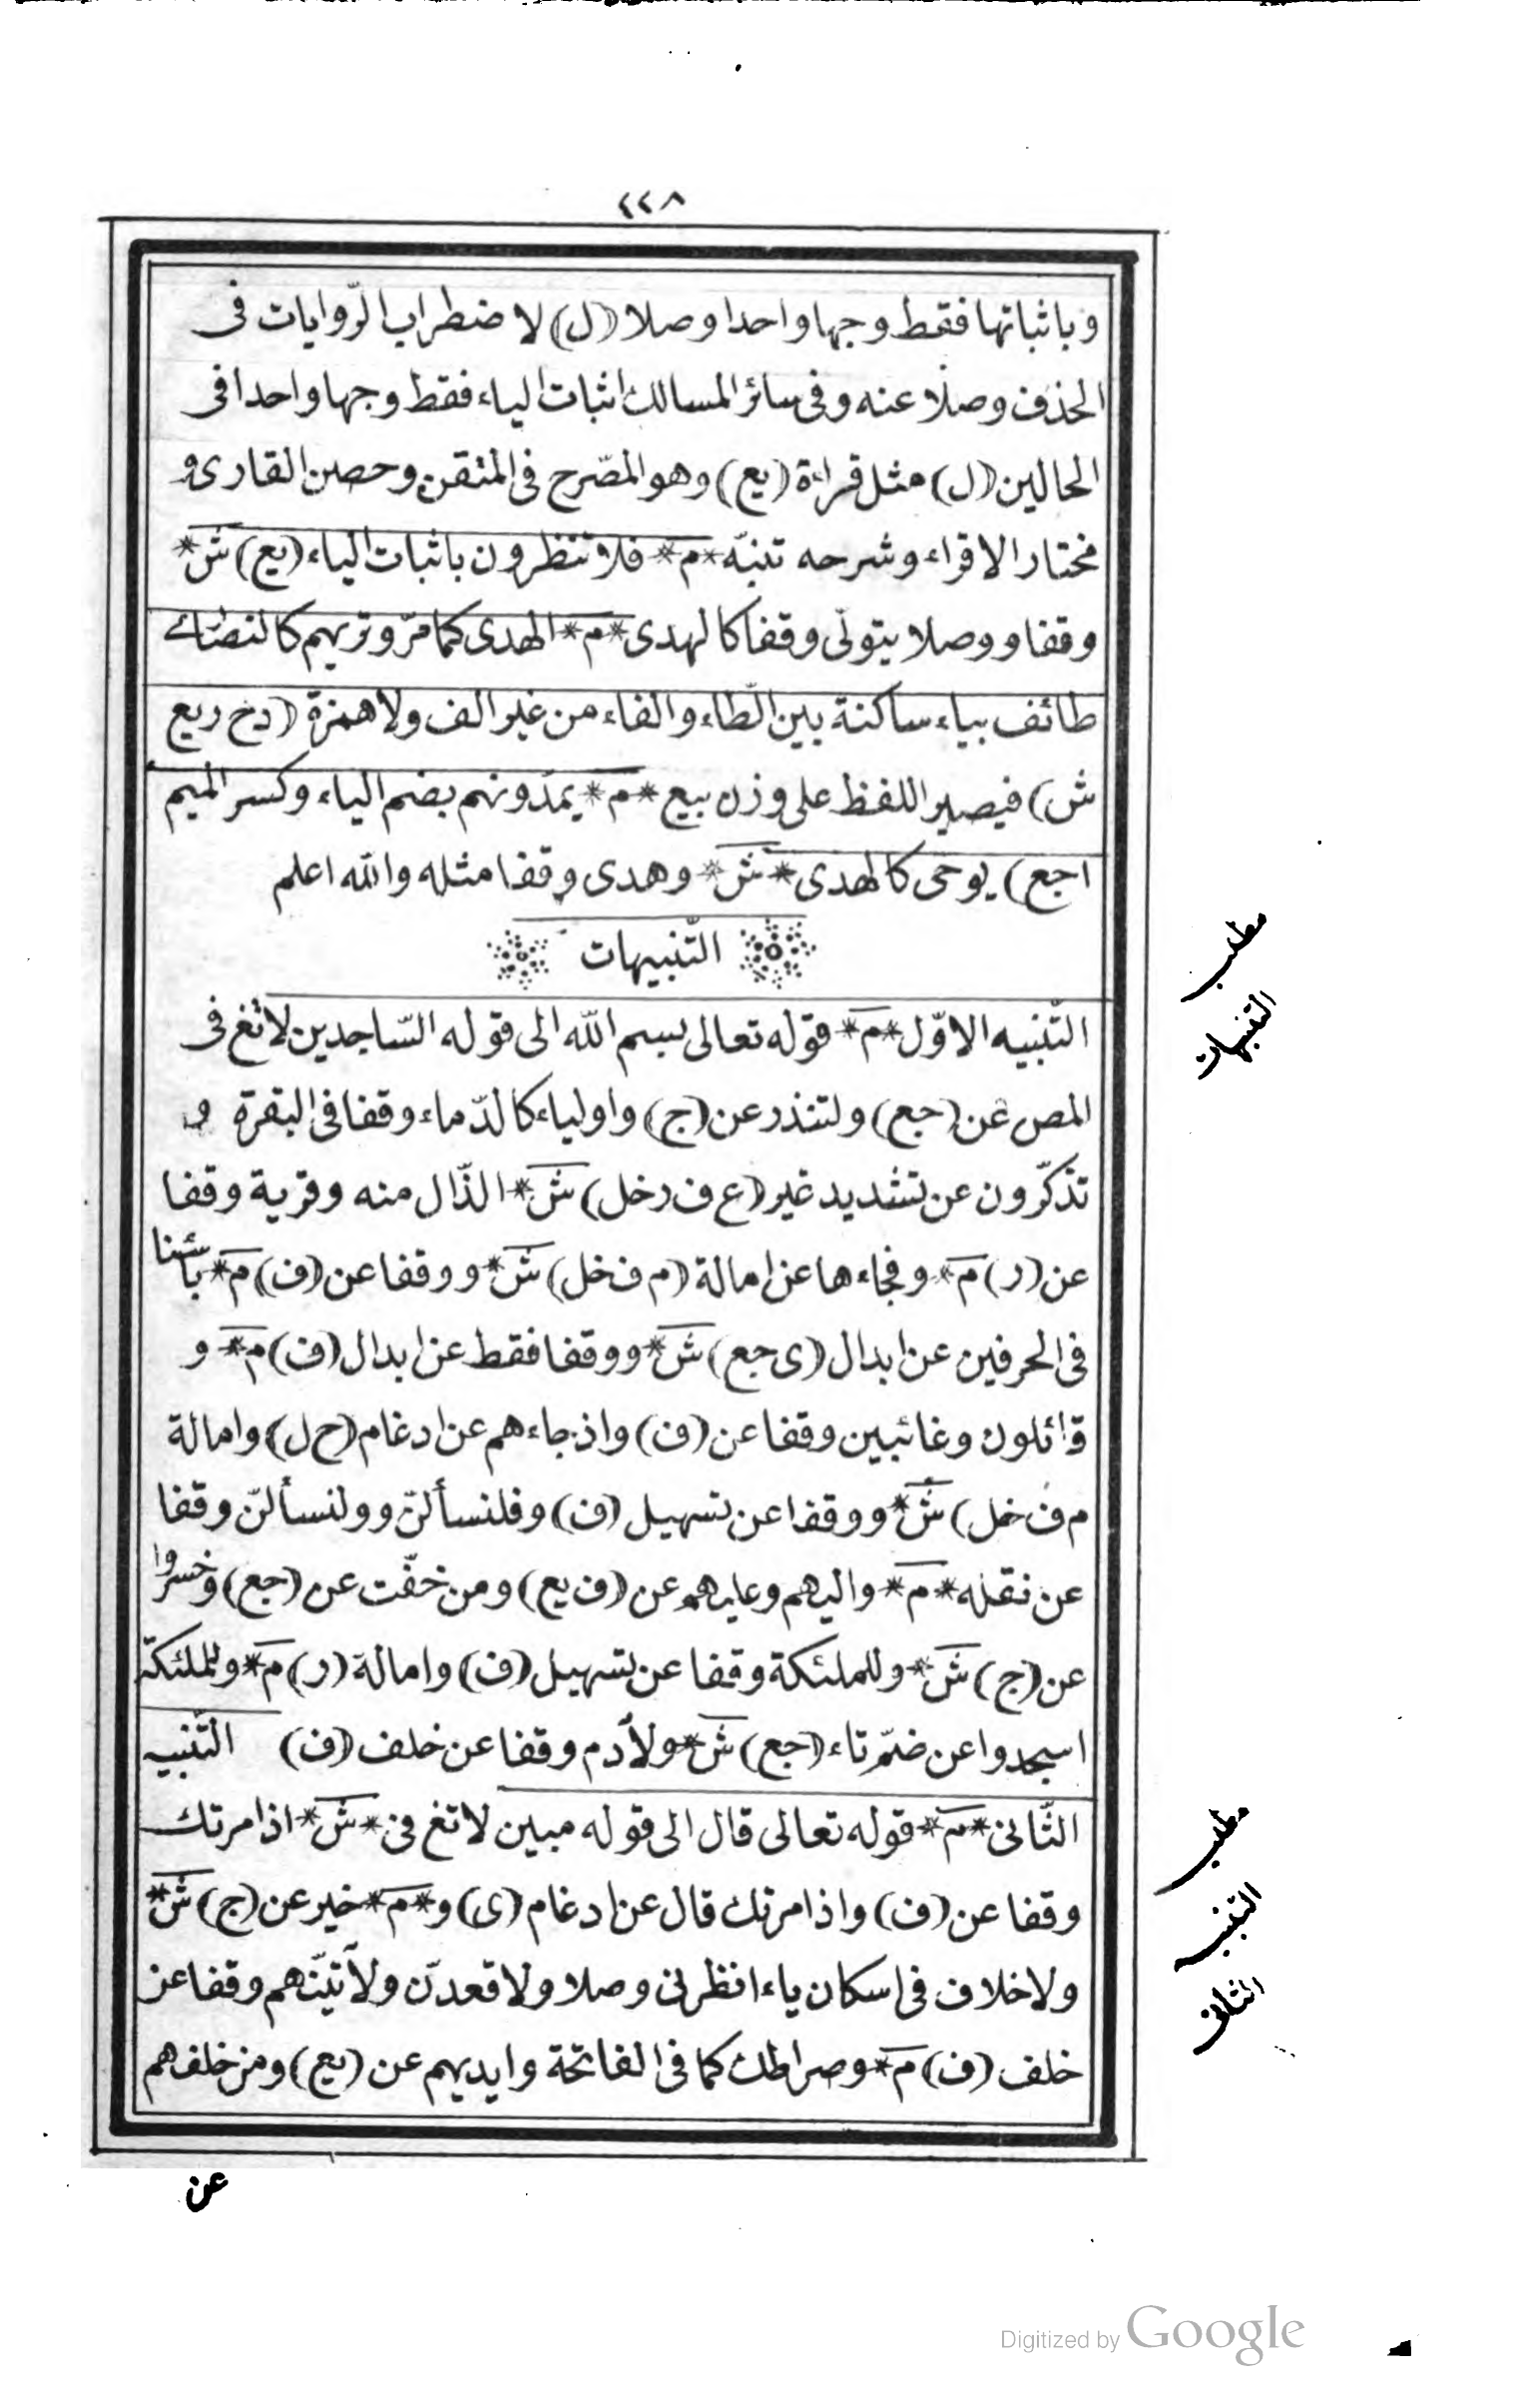 ٤٤٨
وباثباتها فقط وجها واحدا وصلا (ل) لاضطراب الرّوايات فى
الحذف وصلا عنه وفى سائر المسالك اثبات الياء فقط وجها واحدا فى
الحالين (ل) مثل قراءة (يع) وهو المصّرح فى المتقن وحصن القارى و
مختار الاقراء وشرحه تنبّه * م * فلا تنظرون باثبات الياء (يع) ش *
وقفا و ووصلا يتولّى وقفا كالهدى * م * الهدى كما مرّ وتريهم كالنصارى
طائف بياء ساكنة بين الطّاء والفاء من غير الف ولا همزة (دح ر يع
ش) فيصير اللفظ على وزن بيع * م * يمدّونهم بضم الياء وكسر الميم
اجع) يوحى كالهدى * ش * وهدى وقفا مثله والله اعلم
التّنبيهات
مطلب
التنبيهات
التّنبيه الاوّل * م * قوله تعالى بسم الله الى قوله السّاجدين لا تغ فى
المص عن (جع) ولتنذر عن (ج) واولياء كالدّماء وقفا فى البقرة و
تذكّرون عن تشديد غير (ع ف ر خل) ش * الذّال منه وقرية وقفا
عن (ر) م * وفجاءها عن امالة (م ف خل) ش * ووقفا عن (ف) م * بأسنا
فى الحرفين عن ابدال (ى جع) ش * ووقفا فقط عن ابدال (ف) م * و
قائلون وغائبين وقفا عن (ف) واذ جاءهم عن ادغام (ح ل) وامالة
م ف خل) ش * ووقفا عن تسهيل (ف) وفلنسألنّ وولنسألنّ وقفا
عن نقله * م * واليهم وعليهم عن (ف يع) ومن خفّت عن (جع) وخسروا
عن (ج) ش * وللملئكة وقفا عن تسهيل (ف) وامالة (ر) م * وللملئكة
اسجدوا عن ضمّ تاء (جع) ش * ولآدم وقفا عن خلف (ف) التّنبيه
الثّانى * م * قوله تعالى قال الى قوله مبين لا تغ فى * ش * اذ امرتك
مطلب
التنبيه
الثانى
وقفا عن (ف) واذ امرتك قال عن ادغام (ى) و * م * خير عن (ج) ش *
ولا خلاف فى اسكان ياء انظرنى وصلا ولاقعدنّ ولآتينّهم وقفا عن
خلف (ف) م * وصراطك كما فى الفاتحة وايديهم عن (يع) ومن خلفهم
عن
Digitized by Google